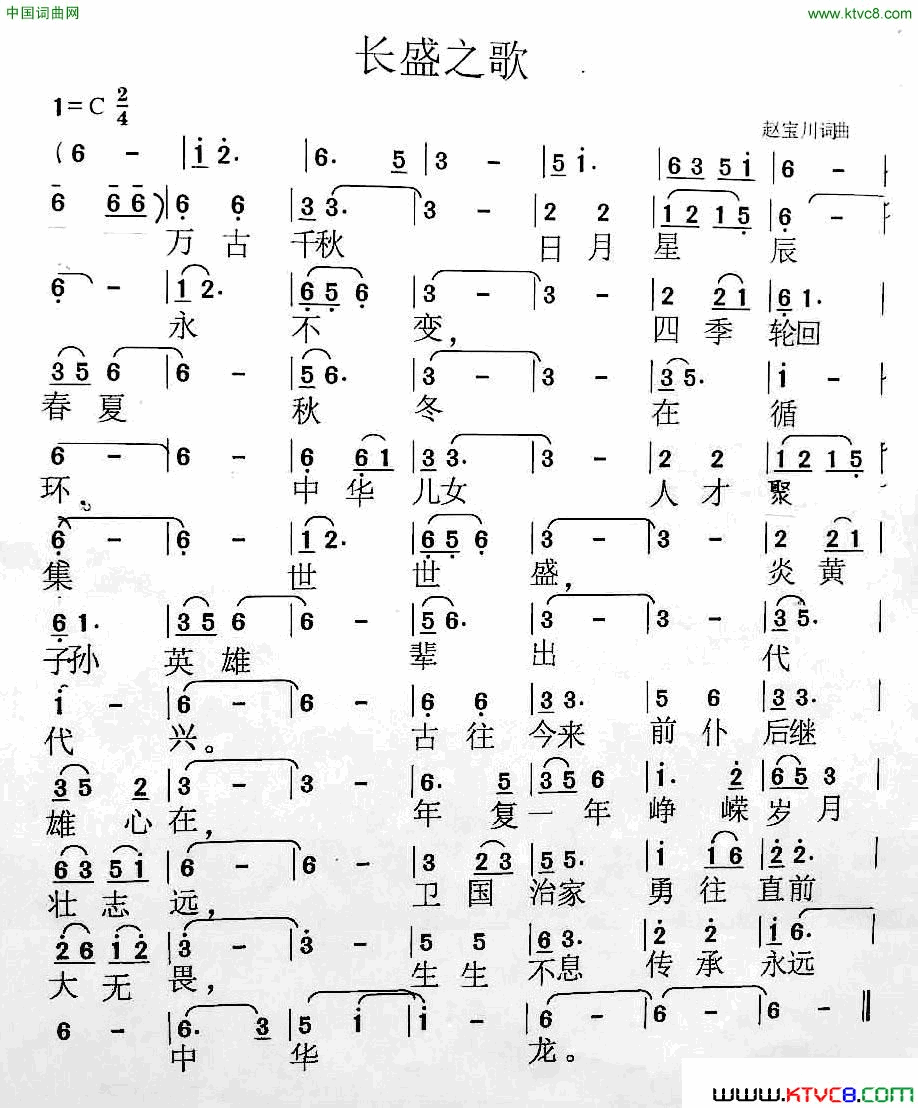 中国词曲网 www.ktvc8.com
长盛之歌
1=C 2/4
赵宝川词曲
(6 - | 1 2. | 6. 5 | 3 - | 5 1. | 6 3 5 1 | 6 - |
6 6 6) | 6 6 | 3 3. | 3 - | 2 2 | 1 2 1 5 | 6 - |
万古 千秋 日月 星 辰
6 - | 1 2. | 6 5 6 | 3 - | 3 - | 2 2 1 | 6 1. |
永 不 变, 四季 轮回
3 5 6 | 6 - | 5 6. | 3 - | 3 - | 3 5. | 1 - |
春夏 秋 冬 在 循
6 - | 6 - | 6 6 1 | 3 3. | 3 - | 2 2 | 1 2 1 5 |
环。 中华 儿女 人才 聚
6 - | 6 - | 1 2. | 6 5 6 | 3 - | 3 - | 2 2 1 |
集 世 世 盛, 炎黄
6 1. | 3 5 6 | 6 - | 5 6. | 3 - | 3 - | 3 5. |
子孙 英雄 辈 出 代
1 - | 6 - | 6 - | 6 6 | 3 3. | 5 6 | 3 3. |
代 兴。 古往 今来 前仆 后继
3 5 2 | 3 - | 3 - | 6. 5 | 3 5 6 | 1. 2 | 6 5 3 |
雄心 在, 年复 一年 峥嵘 岁月
6 3 5 1 | 6 - | 6 - | 3 2 3 | 5 5. | 1 1 6 | 2 2. |
壮志 远, 卫国 治家 勇往 直前
2 6 1 2 | 3 - | 3 - | 5 5 | 6 3. | 2 2 | 1 6. |
大无 畏, 生生 不息 传承 永远
6 - | 6. 3 | 5 1 | 1 - | 6 - | 6 - | 6 - ‖
中 华 龙。
www.KTVC8.com